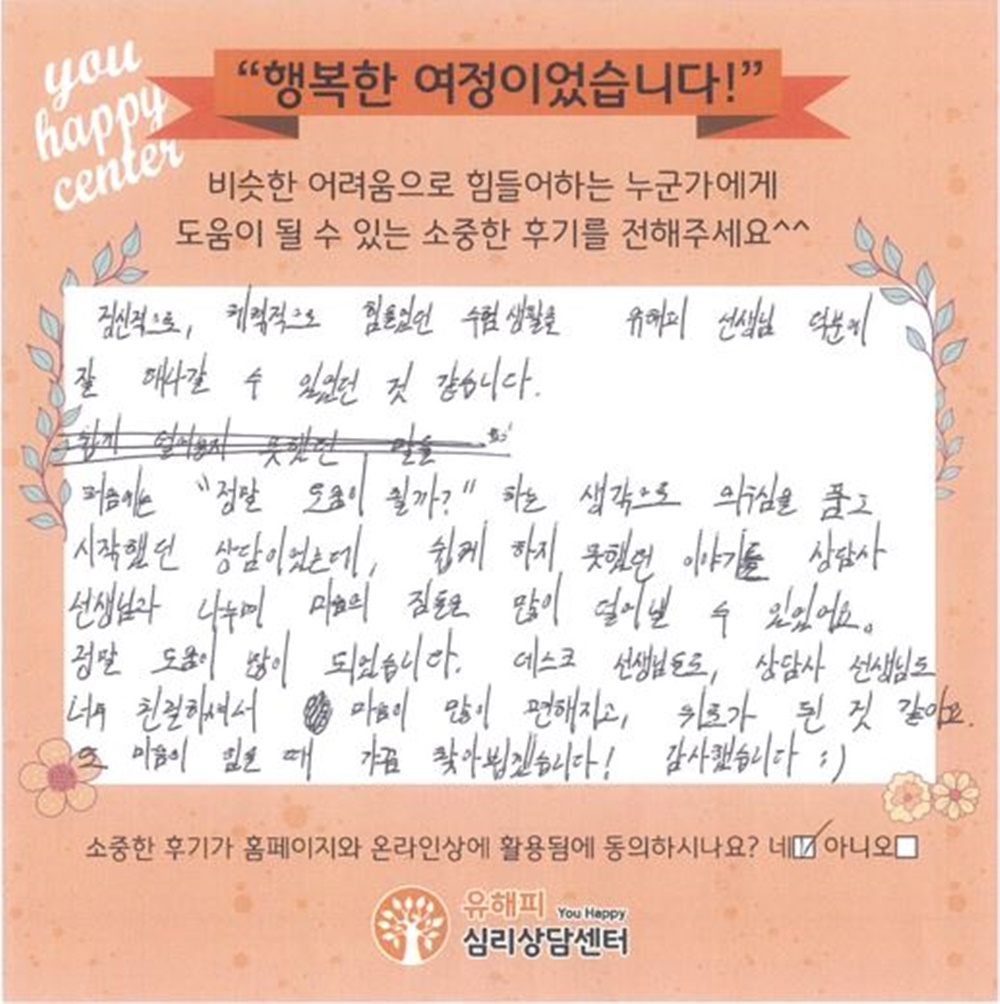 you
happy
center
“행복한 여정이었습니다!”
비슷한 어려움으로 힘들어하는 누군가에게
도움이 될 수 있는 소중한 후기를 전해주세요^^
정신적으로, 체력적으로 힘들었던 수험생활을 유해피 선생님 덕분에
잘 해나갈 수 있었던 것 같습니다.
쉽게 털어놓지 못했던 말을
처음에는 "정말 도움이 될까?" 하는 생각으로 의구심을 품고
시작했던 상담이었는데, 쉽게 하지 못했던 이야기를 상담사
선생님과 나누며 마음의 짐들을 많이 덜어낼 수 있었어요.
정말 도움이 많이 되었습니다. 데스크 선생님들도, 상담사 선생님도
너무 친절하셔서 마음이 많이 편해지고, 위로가 된 것 같아요.
또 마음이 힘들 때 가끔 찾아뵙겠습니다! 감사했습니다 :)
소중한 후기가 홈페이지와 온라인상에 활용됨에 동의하시나요? 네☑ 아니오☐
유해피 You Happy
심리상담센터